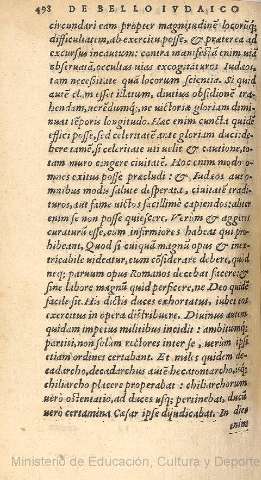 498 DE BELLO IVDAICO
circundari eam propter magnitudinē locorūq;
difficultatem, ab exercitu posse, & præterea ad
excursus incautum: contra manifesta enim uia
obseruata, occultas uias excogitaturos Iudæos
tam necessitate quā locorum scientia. Si quid
autē clàm esset illatum, diutius obsidionē tra-
hendam, uerēdumq́;, ne uictoriæ gloriam dimi-
nuat tēporis longitudo. Hoc enim cuncta quidē
effici posse, sed celeritatē ante gloriam duci: de-
bere tamē, si celeritate uti uelit & cautione, to-
tam muro cingere ciuitatē. Hoc enim modo o-
mnes exitus posse præcludi: & Iudæos aut o-
mnibus modis salute desperata, ciuitatē tradi-
turos, aut fame uictos facillimè capiendos: aliter
enim se non posse quiescere. Verùm & aggerū
curaturū esse, cum infirmiores habeat qui pro-
hibeant. Quod si cuiquā magnū opus & inex-
tricabile uideatur, eum cōsiderare debere, quòd
neq; paruum opus Romanos deceat facere: &
sine labore magnū quid perficere, ne Deo quidē
facile sit. His dictis duces exhortatus, iubet eos
exercitus in opera distribuere. Diuinus autem
quidam impetus militibus incidit: ambitumq́;
partiti, non solùm rectores inter se, uerùm ipsi
etiam ordines certabant. Et miles quidem de-
cadarcho, decadarchus autē hecatontarcho, isq́;
chiliarcho placere properabat: chiliarchorum
uerò ostentatio, ad duces usq; pertinebat, ducū
uerò certamina Cæsar ipse dijudicabat. In dies
enim
Ministerio de Educación, Cultura y Deporte